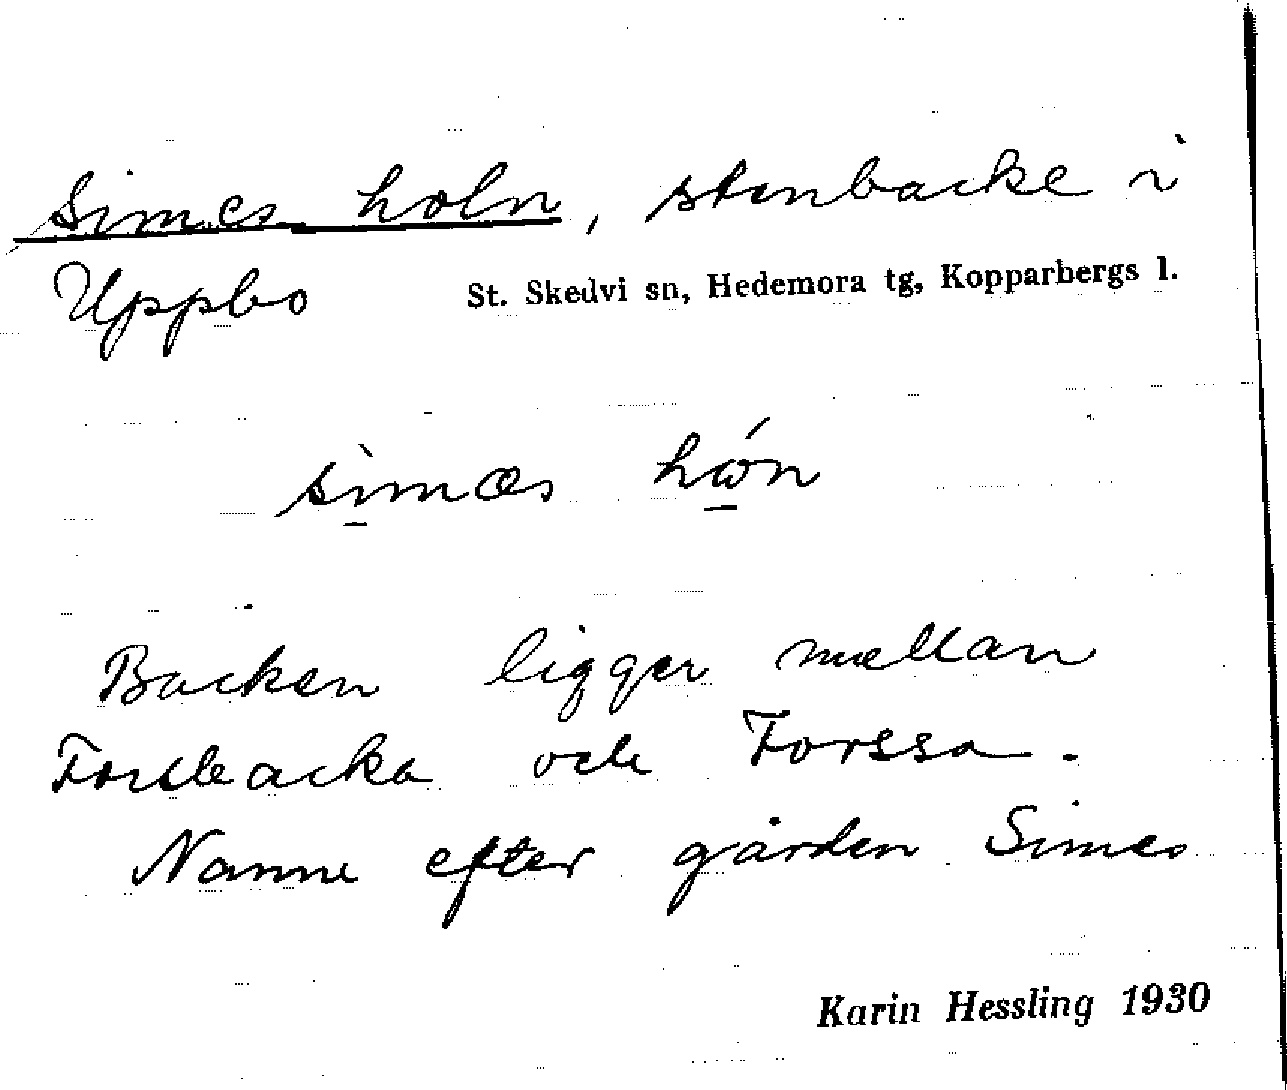 Simes holn, stenbacke i
Uppbo St. Skedvi sn, Hedemora tg, Kopparbergs l.
sìmæs hón
Backen ligger mellan
Forsbacka och Forssa.
Namne efter gården Simes
Karin Hessling 1930